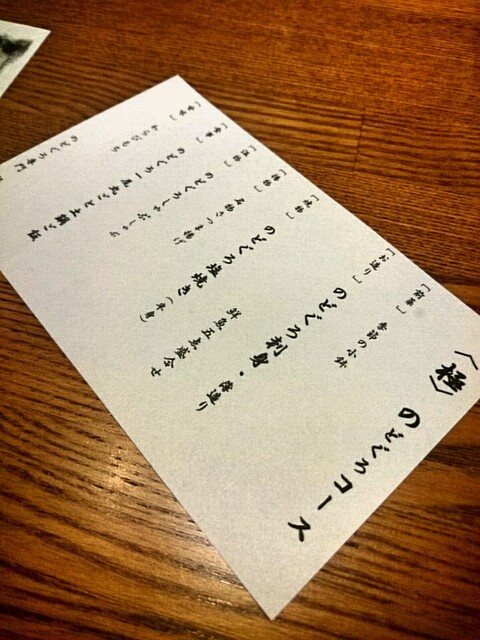 〈極〉のどぐろコース
［前菜］ 季節の小鉢
［お造り］ のどぐろ刺身・薄造り
鮮魚五点盛合せ
［焼物］ のどぐろ塩焼き（半身）
［揚物］ 名物さつま揚げ
のどぐろしゃぶしゃぶ
［食事］ のどぐろ一尾丸ごと土鍋ご飯
わらびもち
のどぐろ専門